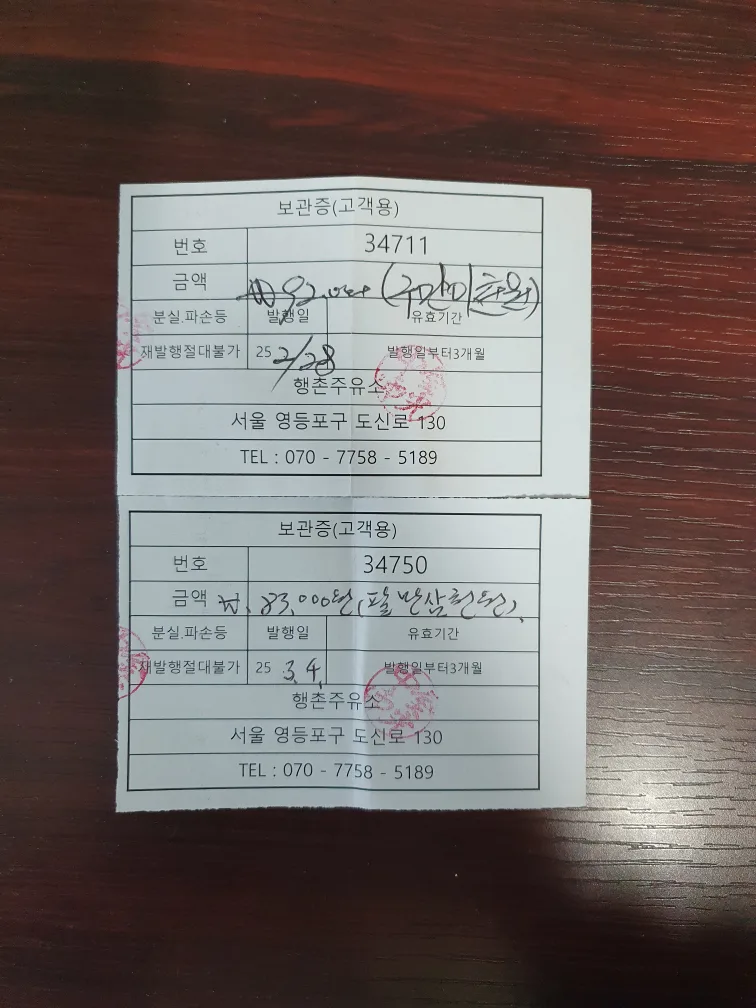 보관증(고객용)
번호 34711
금액 ₩92,000 (구만이천원)
분실.파손등 발행일 유효기간
재발행절대불가 25 2/28 발행일부터3개월
행촌주유소
서울 영등포구 도신로 130
TEL : 070 - 7758 - 5189
보관증(고객용)
번호 34750
금액 ₩. 83,000원(팔만삼천원).
분실.파손등 발행일 유효기간
재발행절대불가 25 3. 4. 발행일부터3개월
행촌주유소
서울 영등포구 도신로 130
TEL : 070 - 7758 - 5189